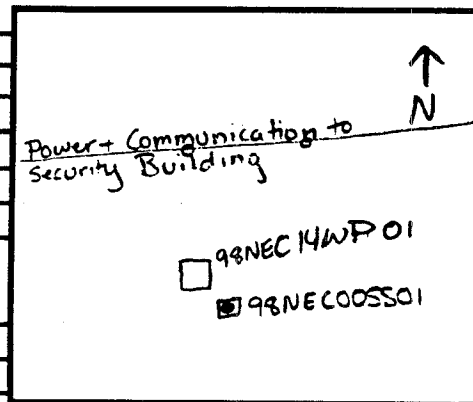 N
Power + Communication to
Security Building
98NEC14WP01
98NEC00SS01